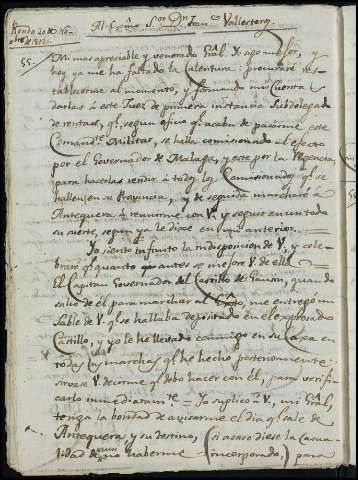 Ronda 20 de No-
bre de 1812.
Al Exmo Sor Dn Franco Vallesteros.
55.
Mi mas apreciable y venerado Gral. Yo sigo mejor, y
hoy ya me ha faltado la calentura procuraré res-
tablecerme al momento, y formando mis Cuentas
darlas á este Juez de primera instancia Subdelegado
de rentas, ql. segun oficio ql. acaba de pasarme este
Comandte Militar, se halla comisionado al efecto
por el Governador de Malaga, y este por la Regencia,
para hacerlas rendir á todos los Comisionados ql. se
hallen en su Provincia, y de seguida marcharé á
Antequera á reunirme con V. y seguir en un todo
su suerte, segun ya le dixe en mi anterior.
Yo siento infinito la indisposicion de V. y cele-
braré ql. quanto antes se mejore V. de ella =
El Capitan Governador del Castillo de Gausin, quando
salió de él para marchar al me entregó un
Sable de V. ql. se hallaba depositado en el expresado
Castillo, y yo le he llevado conmigo en su Caxa en
todas las marchas ql. he hecho posteriormente
sirvase V. decirme ql. debo hacer con él, para verifi-
carlo inmediatamte = Yo suplico á V. mi Gral,
tenga la bondad de avisarme el dia ql. sale de
Antequera y su destino, (si acaso diese la casua-
lidad de no haberme aun incorporado,) para